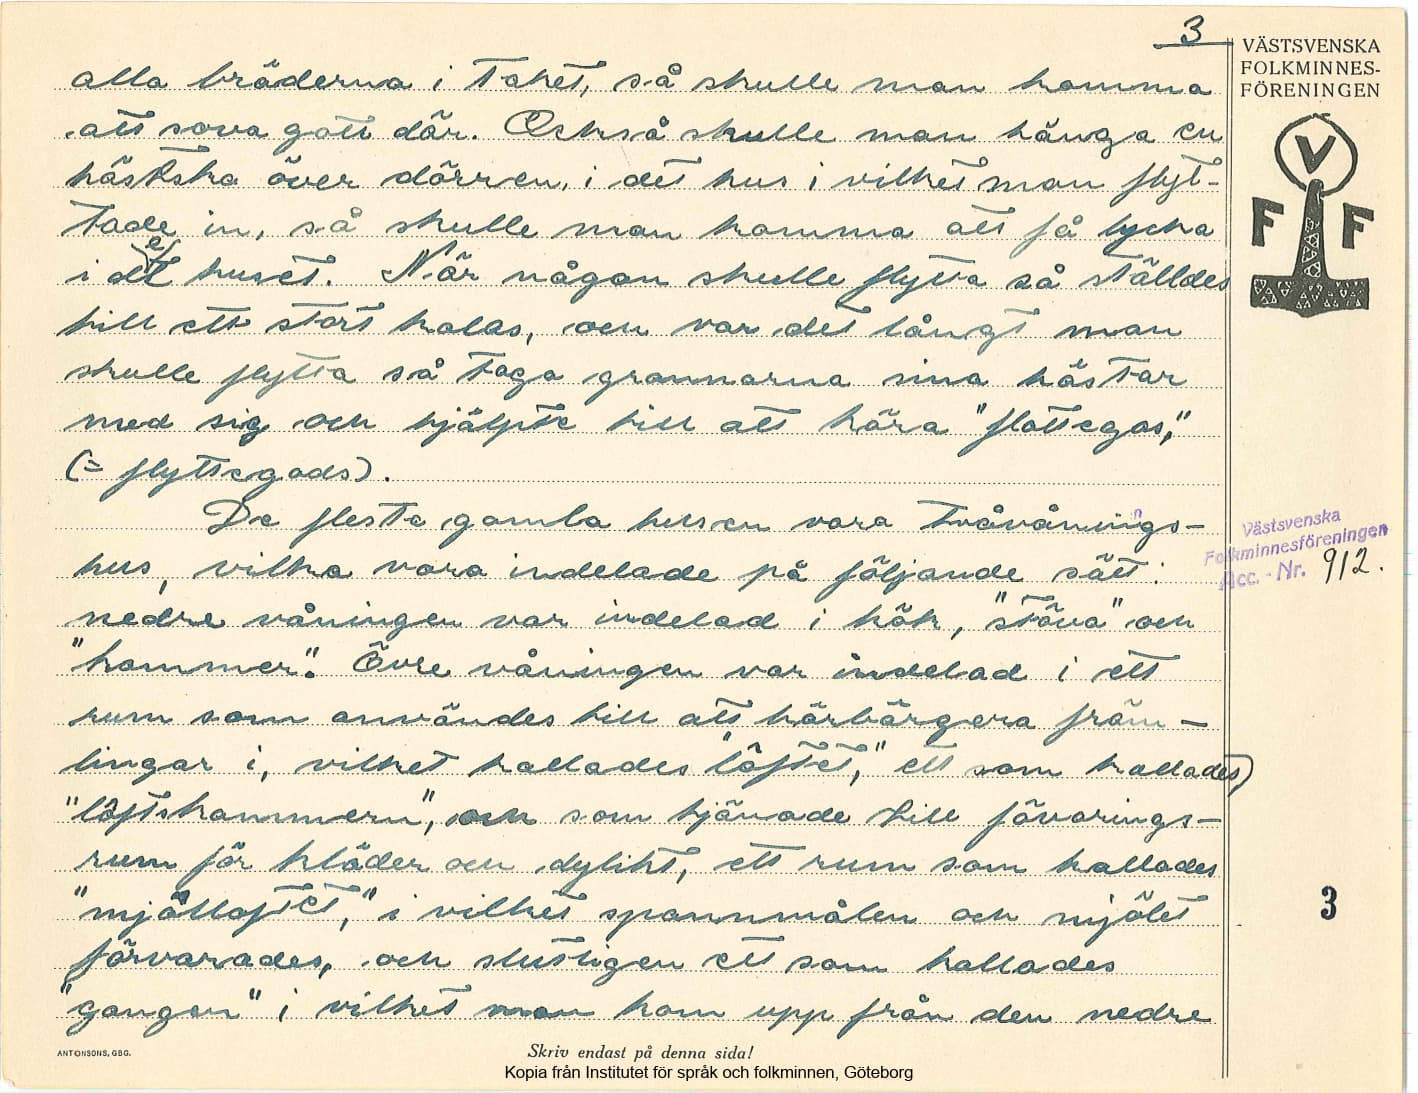 3
VÄSTSVENSKA
FOLKMINNES-
FÖRENINGEN
V
F F
alla bräderna i taket, så skulle man komma
att sova gott där. Också skulle man hänga en
hästsko över dörren, i det hus i vilket man flyt-
tade in, så skulle man komma att få lycka
i det huset. När någon skulle flytta så ställdes
till ett stort kalas, och var det långt man
skulle flytta så toga grannarna sina hästar
med sig och hjälpte till att köra "flottegos,"
(= flyttegods).
De flesta gamla husen vara tvåvånings-
hus, vilka vara indelade på följande sätt:
nedre våningen var indelad i kök, "stöva" och
"kammer". Övre våningen var indelad i ett
rum som användes till att härbärgera främ-
lingar i, vilket kallades "löftet," ett som kallades
"löftskammern", och som tjänade till förvarings-
rum för kläder och dylikt, ett rum som kallades
"mjölloftet," i vilket spannmålen och mjölet
förvarades, och slutligen ett som kallades
"gangen" i vilket man kom upp från den nedre
Västsvenska
Folkminnesföreningen
Acc. - Nr. 912.
3
ANTONSONS, GBG.
Skriv endast på denna sida!
Kopia från Institutet för språk och folkminnen, Göteborg